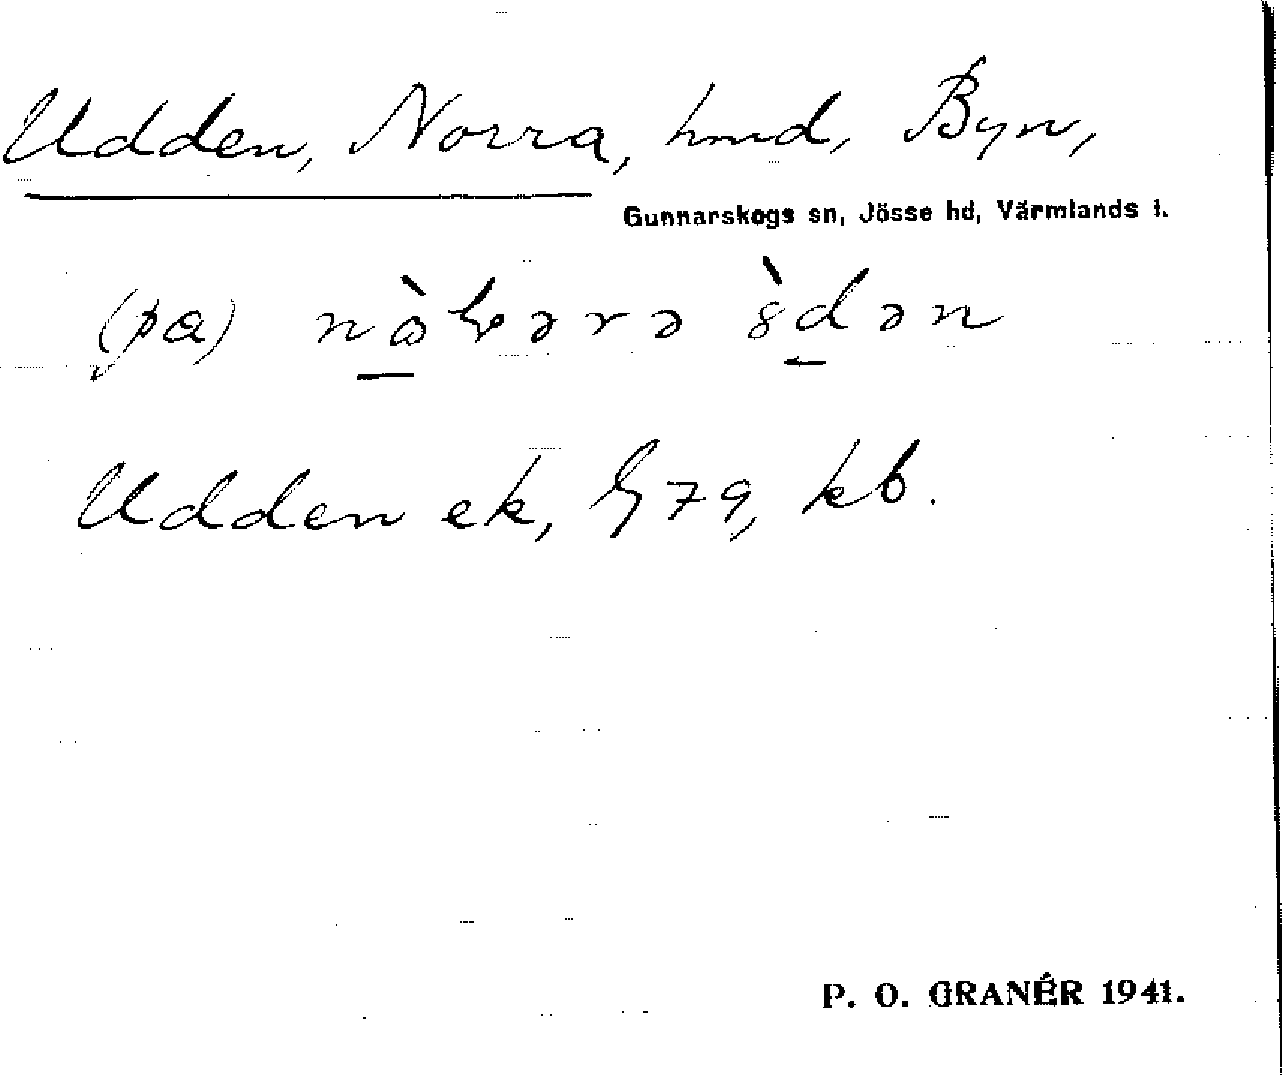 Udden, Norra, hmd, Byn,
Gunnarskogs sn, Jösse hd, Värmlands l.
(pa)
Udden ek, G 79, kb.
P. O. GRANÉR 1941.